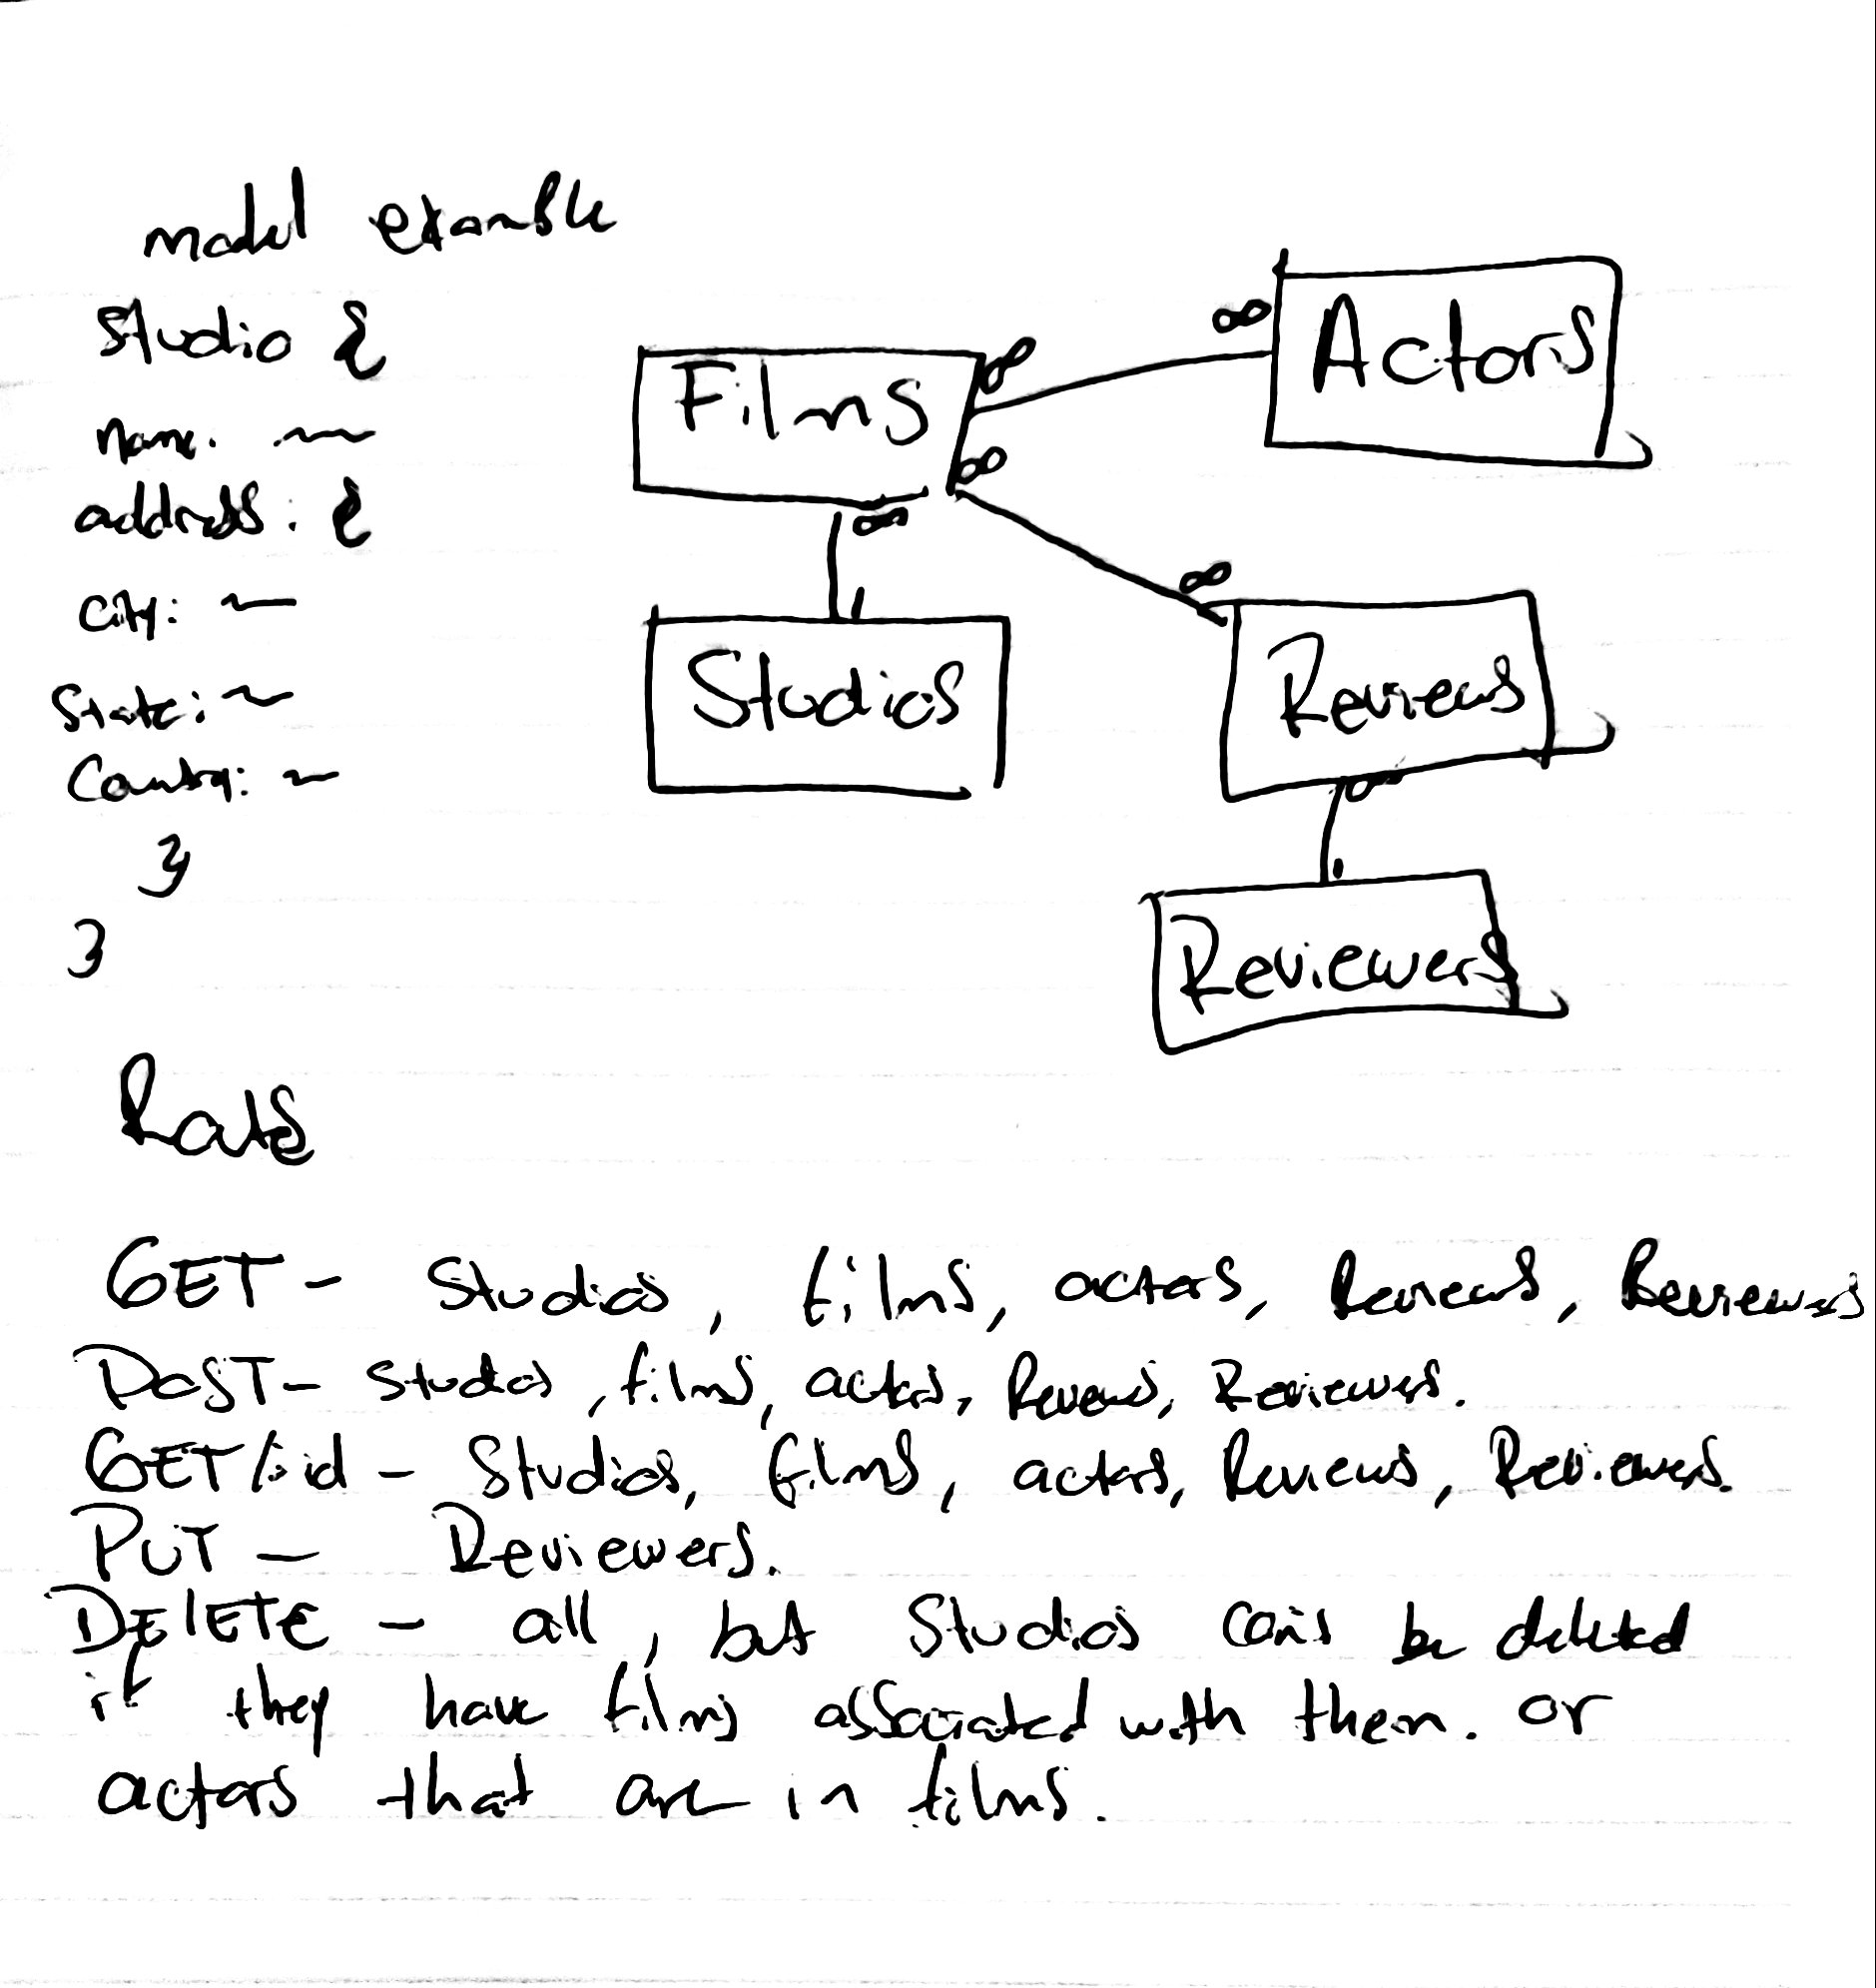 model example
Studio {
Name: ~
address: {
City: ~
State: ~
Country: ~
}
}
Films
∞
∞
∞
∞
Actors
∞
1
Studios
∞
Reviews
∞
1
Reviewers
GET - Studios, films, actors, Reviews, Reviewers
POST - studios, films, actors, Reviews, Reviewers.
GET/:id - Studios, films, actors, Reviews, Reviewers.
PUT - Reviewers.
DELETE - all, but Studios can't be deleted
if they have films associated with them. or
actors that are in films.